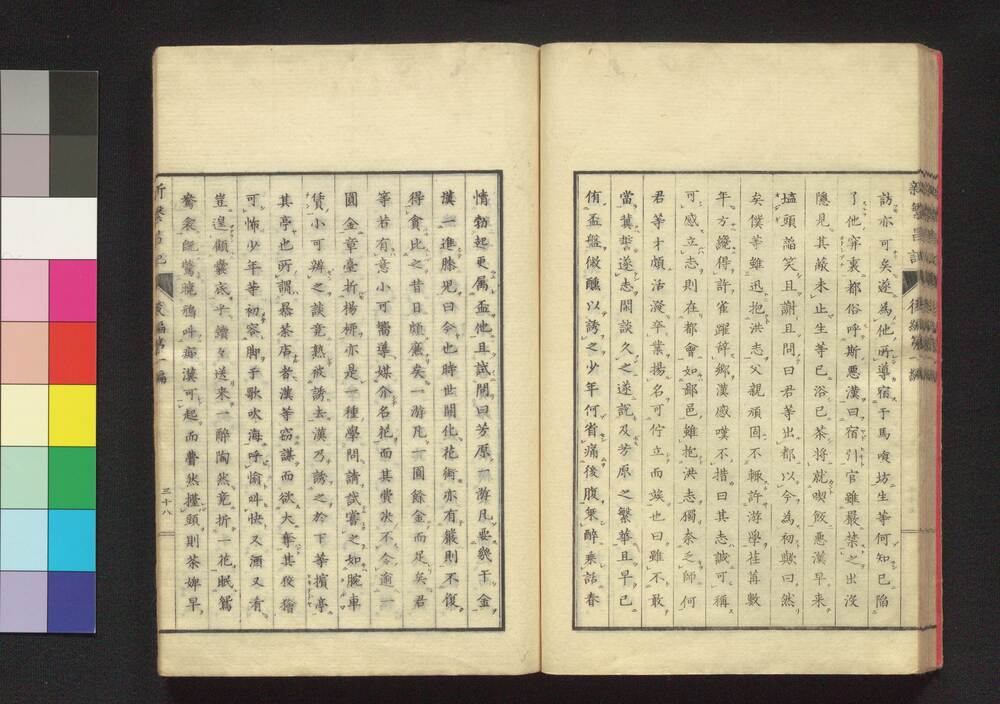 訪亦可矣遂為他所導宿于馬喰坊生等何知已陷
了他穽裏都俗呼斯悪漢曰宿引官雖嚴禁之出沒
隱見其敵未止生等已浴已茶将就喫飯悪漢早来
爐頭謟笑且謝且問曰君等出都以今為初歟曰然
矣僕等雖迅抱洪志父親頑固不輙許游學荏苒數
年方纔得許雀躍辭郷漢感嘆不措曰其志誠可稱
可感立志則在都會如鄙邑雖抱洪志獨奈之師何
君等才頗活潑卒業揚名可佇立而竢也曰雖不敢
當冀誓遂志閑談久之遂説及芳原之繁華且早已
侑盃盤微醺以誘之少年何省痛後腹無醉乗詰春
情勃起更属盃他且試問曰芳原一游凡要幾干金
漢一進膝児曰今也時世開化花街亦有嚴則不復
得貪比之昔日頗廉矣一游凡一圓餘金而足矣君
等若有意小可嚮導媒介名花而其費决不令逾一
圓金章臺折楊柳亦是一種學問請試嘗之如腕車
賃小可辨之談竟熟被誘去漢乃誘之於下等擯亭
其亭也所謂暴茶店者漢等窃謀而欲大奪其狡獪
可怖少年等初容脚于歌吹海呼愉呌快又酒又肴
豈遑顧嚢底乎續々送来一醉陶然竟折一花眠鴛
鴦衾既驚曉鴉呼瘛漢可起而瞢然擡頭則茶婢早
三十八